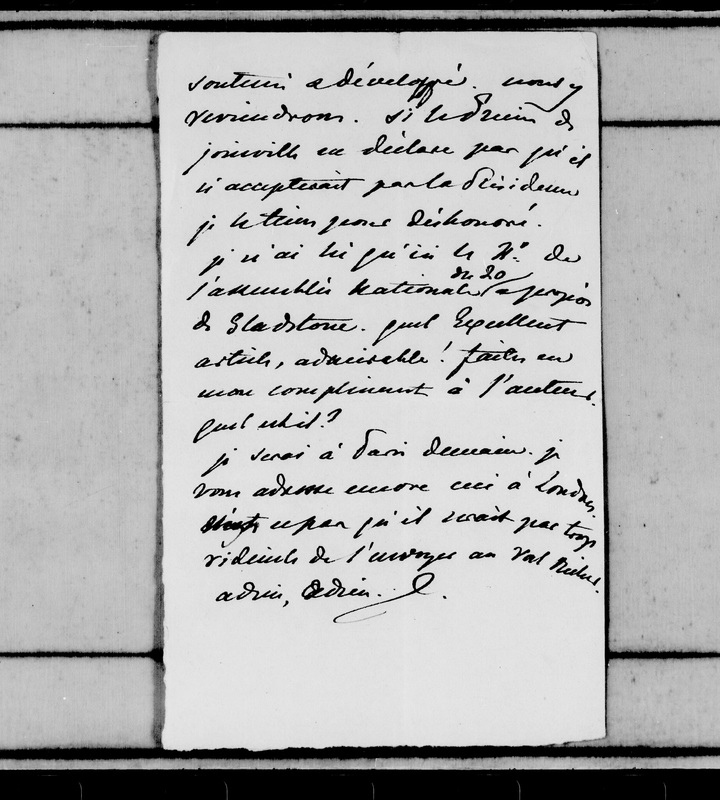 soutenir & développé. nous y
reviendrons. si le Prince de
joinville ne déclare pas qu'il
n'accepterait pas la Présidence
je le tiens pour déshonoré.
je n'ai lu qu'ici le N° de
l'assemblée Nationale du 20 à propos
de Gladstone. quel Excellent
article, admirable! faites en
mon compliment à l'auteur.
quel est-il?
je serai à Paris demain. je
vous adresse encore ceci à Londres.
n'est-ce pas qu'il serait par trop
ridicule de l'envoyer au Val Richer.
adieu, adieu.